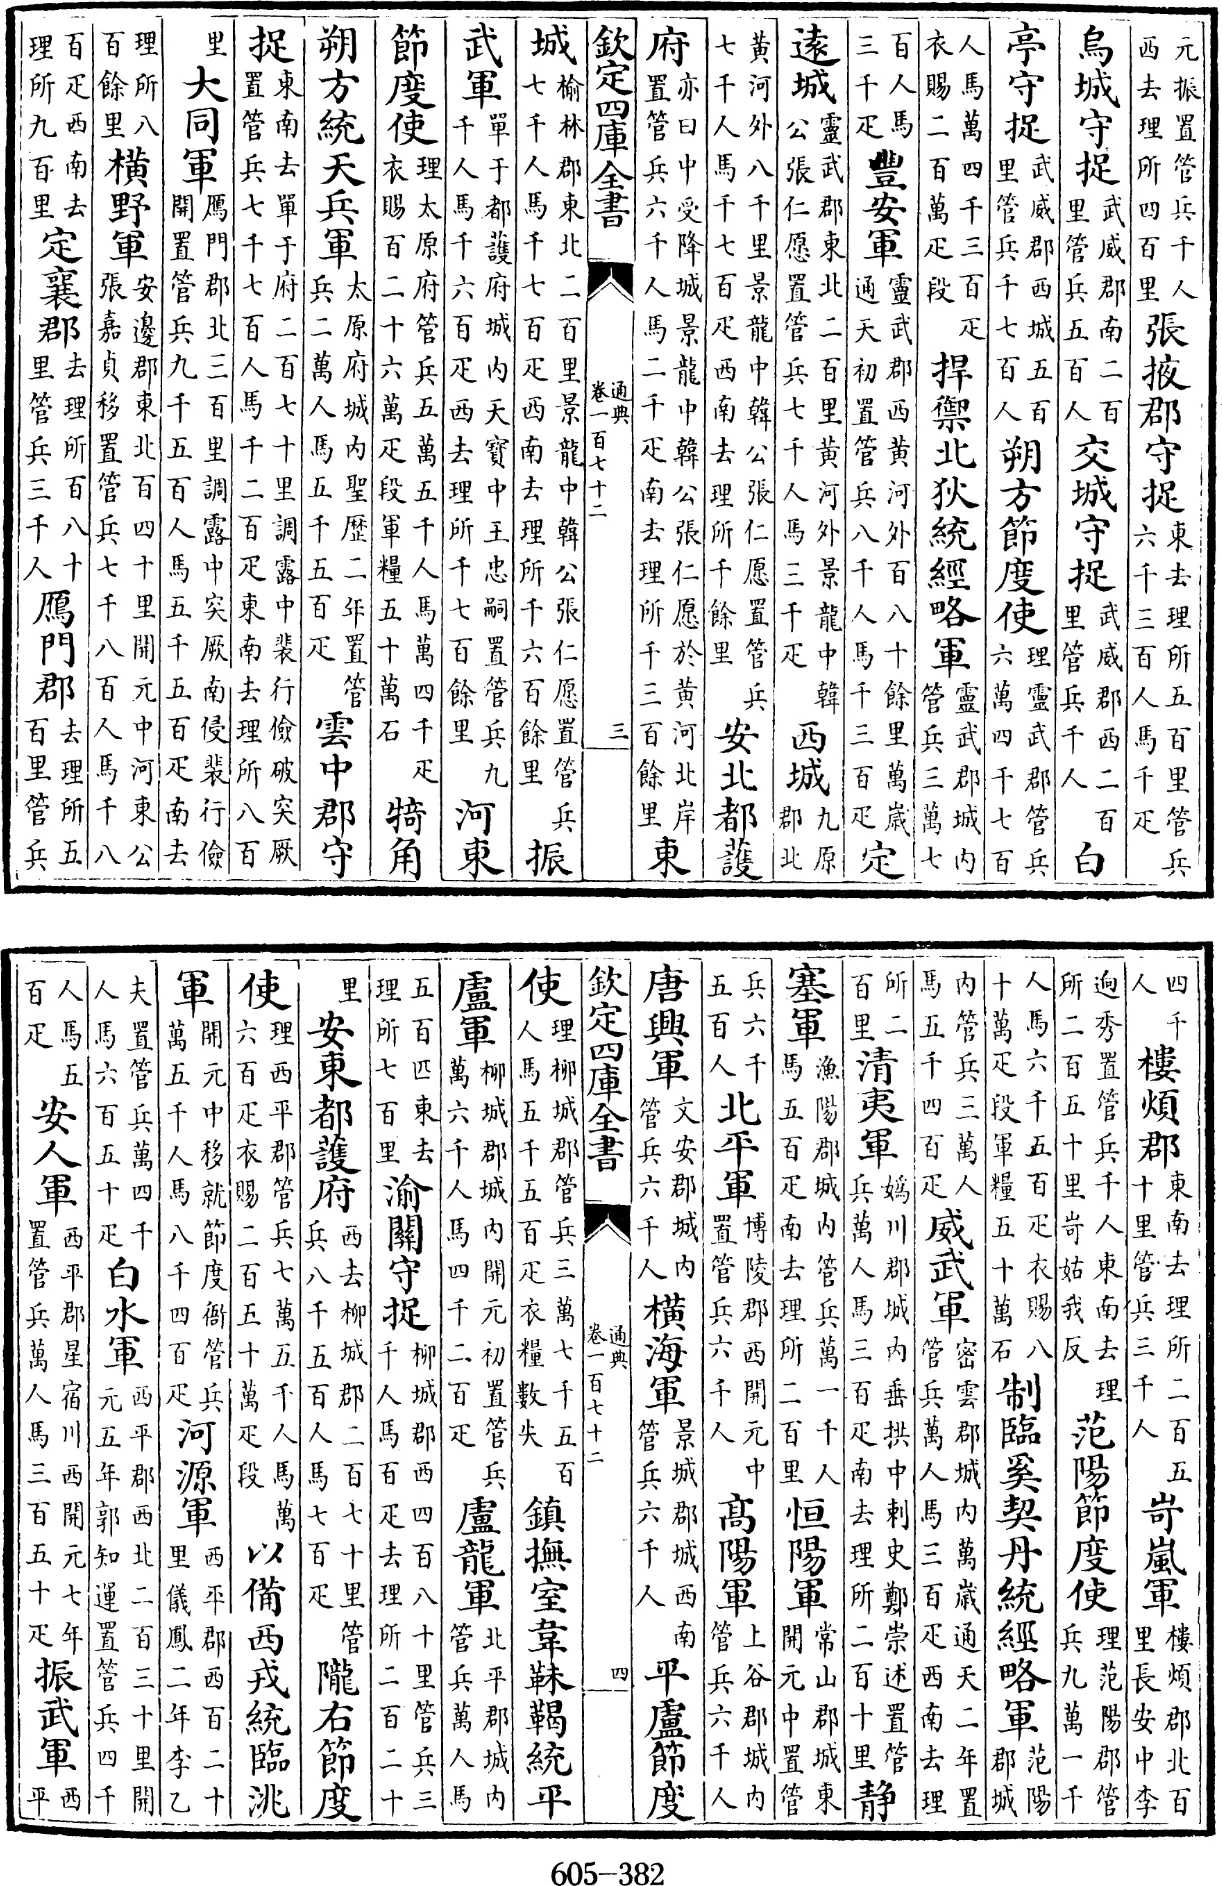 元振置管兵千人西去理所四百里張掖郡守捉東去理所五百里管兵六千三百人馬千疋
烏城守捉武威郡南二百里管兵五百人交城守捉武威郡西二百里管兵千人白
亭守捉武威郡西城五百里管兵千七百人朔方節度使理靈武郡管兵六萬四千七百
人馬萬四千三百疋衣賜二百萬疋段捍禦北狄統經略軍靈武郡城内管兵三萬七
百人馬三千疋豐安軍靈武郡西黃河外百八十餘里萬歲通天初置管兵八千人馬千三百疋定
遠城靈武郡東北二百里黃河外景龍中韓公張仁愿置管兵七千人馬三千疋西城九原郡北
黃河外八千里景龍中韓公張仁愿置管兵七千人馬千七百疋西南去理所千餘里安北都護
府亦曰中受降城景龍中韓公張仁愿於黃河北岸置管兵六千人馬二千疋南去理所千三百餘里東
欽定四庫全書 通典卷一百七十二 三
城榆林郡東北二百里景龍中韓公張仁愿置管兵七千人馬千七百疋西南去理所千六百餘里振
武軍單于都護府城内天寶中王忠嗣置管兵九千人馬千六百疋西去理所千七百餘里河東
節度使理太原府管兵五萬五千人馬萬四千疋衣賜百二十六萬疋段軍糧五十萬石犄角
朔方統天兵軍太原府城内聖歷二年置管兵二萬人馬五千五百疋雲中郡守
捉東南去單于府二百七十里調露中裴行儉破突厥置管兵七千七百人馬千二百疋東南去理所八百
里大同軍鴈門郡北三百里調露中突厥南侵裴行儉開置管兵九千五百人馬五千五百疋南去
理所八百餘里橫野軍安邊郡東北百四十里開元中河東公張嘉貞移置管兵七千八百人馬千八
百疋西南去理所九百里定襄郡去理所百八十里管兵三千人鴈門郡去理所五百里管兵
四千人樓煩郡東南去理所二百五十里管兵三千人岢嵐軍樓煩郡北百里長安中李
逈秀置管兵千人東南去理所二百五十里岢姑我反范陽節度使理范陽郡管兵九萬一千
人馬六千五百疋衣賜八十萬疋段軍糧五十萬石制臨奚契丹統經略軍范陽郡城
内管兵三萬人馬五千四百疋威武軍密雲郡城内萬歲通天二年置管兵萬人馬三百疋西南去理
所二百里清夷軍媯川郡城内垂拱中刺史鄭崇述置管兵萬人馬三百疋南去理所二百十里静
塞軍漁陽郡城内管兵萬一千人馬五百疋南去理所二百里恒陽軍常山郡城東開元中置管
兵六千五百人北平軍博陵郡西開元中置管兵六千人高陽軍上谷郡城内管兵六千人
唐興軍文安郡城内管兵六千人橫海軍景城郡城西南管兵六千人平盧節度
欽定四庫全書 通典卷一百七十二 四
使理柳城郡管兵三萬七千五百人馬五千五百疋衣糧數失鎮撫室韋靺鞨統平
盧軍柳城郡城内開元初置管兵萬六千人馬四千二百疋盧龍軍北平郡城内管兵萬人馬
五百匹東去理所七百里渝關守捉柳城郡西四百八十里管兵三千人馬百疋去理所二百二十
里安東都護府西去柳城郡二百七十里管兵八千五百人馬七百疋隴右節度
使理西平郡管兵七萬五千人馬萬六百疋衣賜二百五十萬疋段以備西戎統臨洮
軍開元中移就節度衙管兵萬五千人馬八千四百疋河源軍西平郡西百二十里儀鳳二年李乙
夫置管兵萬四千人馬六百五十疋白水軍西平郡西北二百三十里開元五年郭知運置管兵四千
人馬五百疋安人軍西平郡星宿川西開元七年置管兵萬人馬三百五十疋振武軍西平
605-382